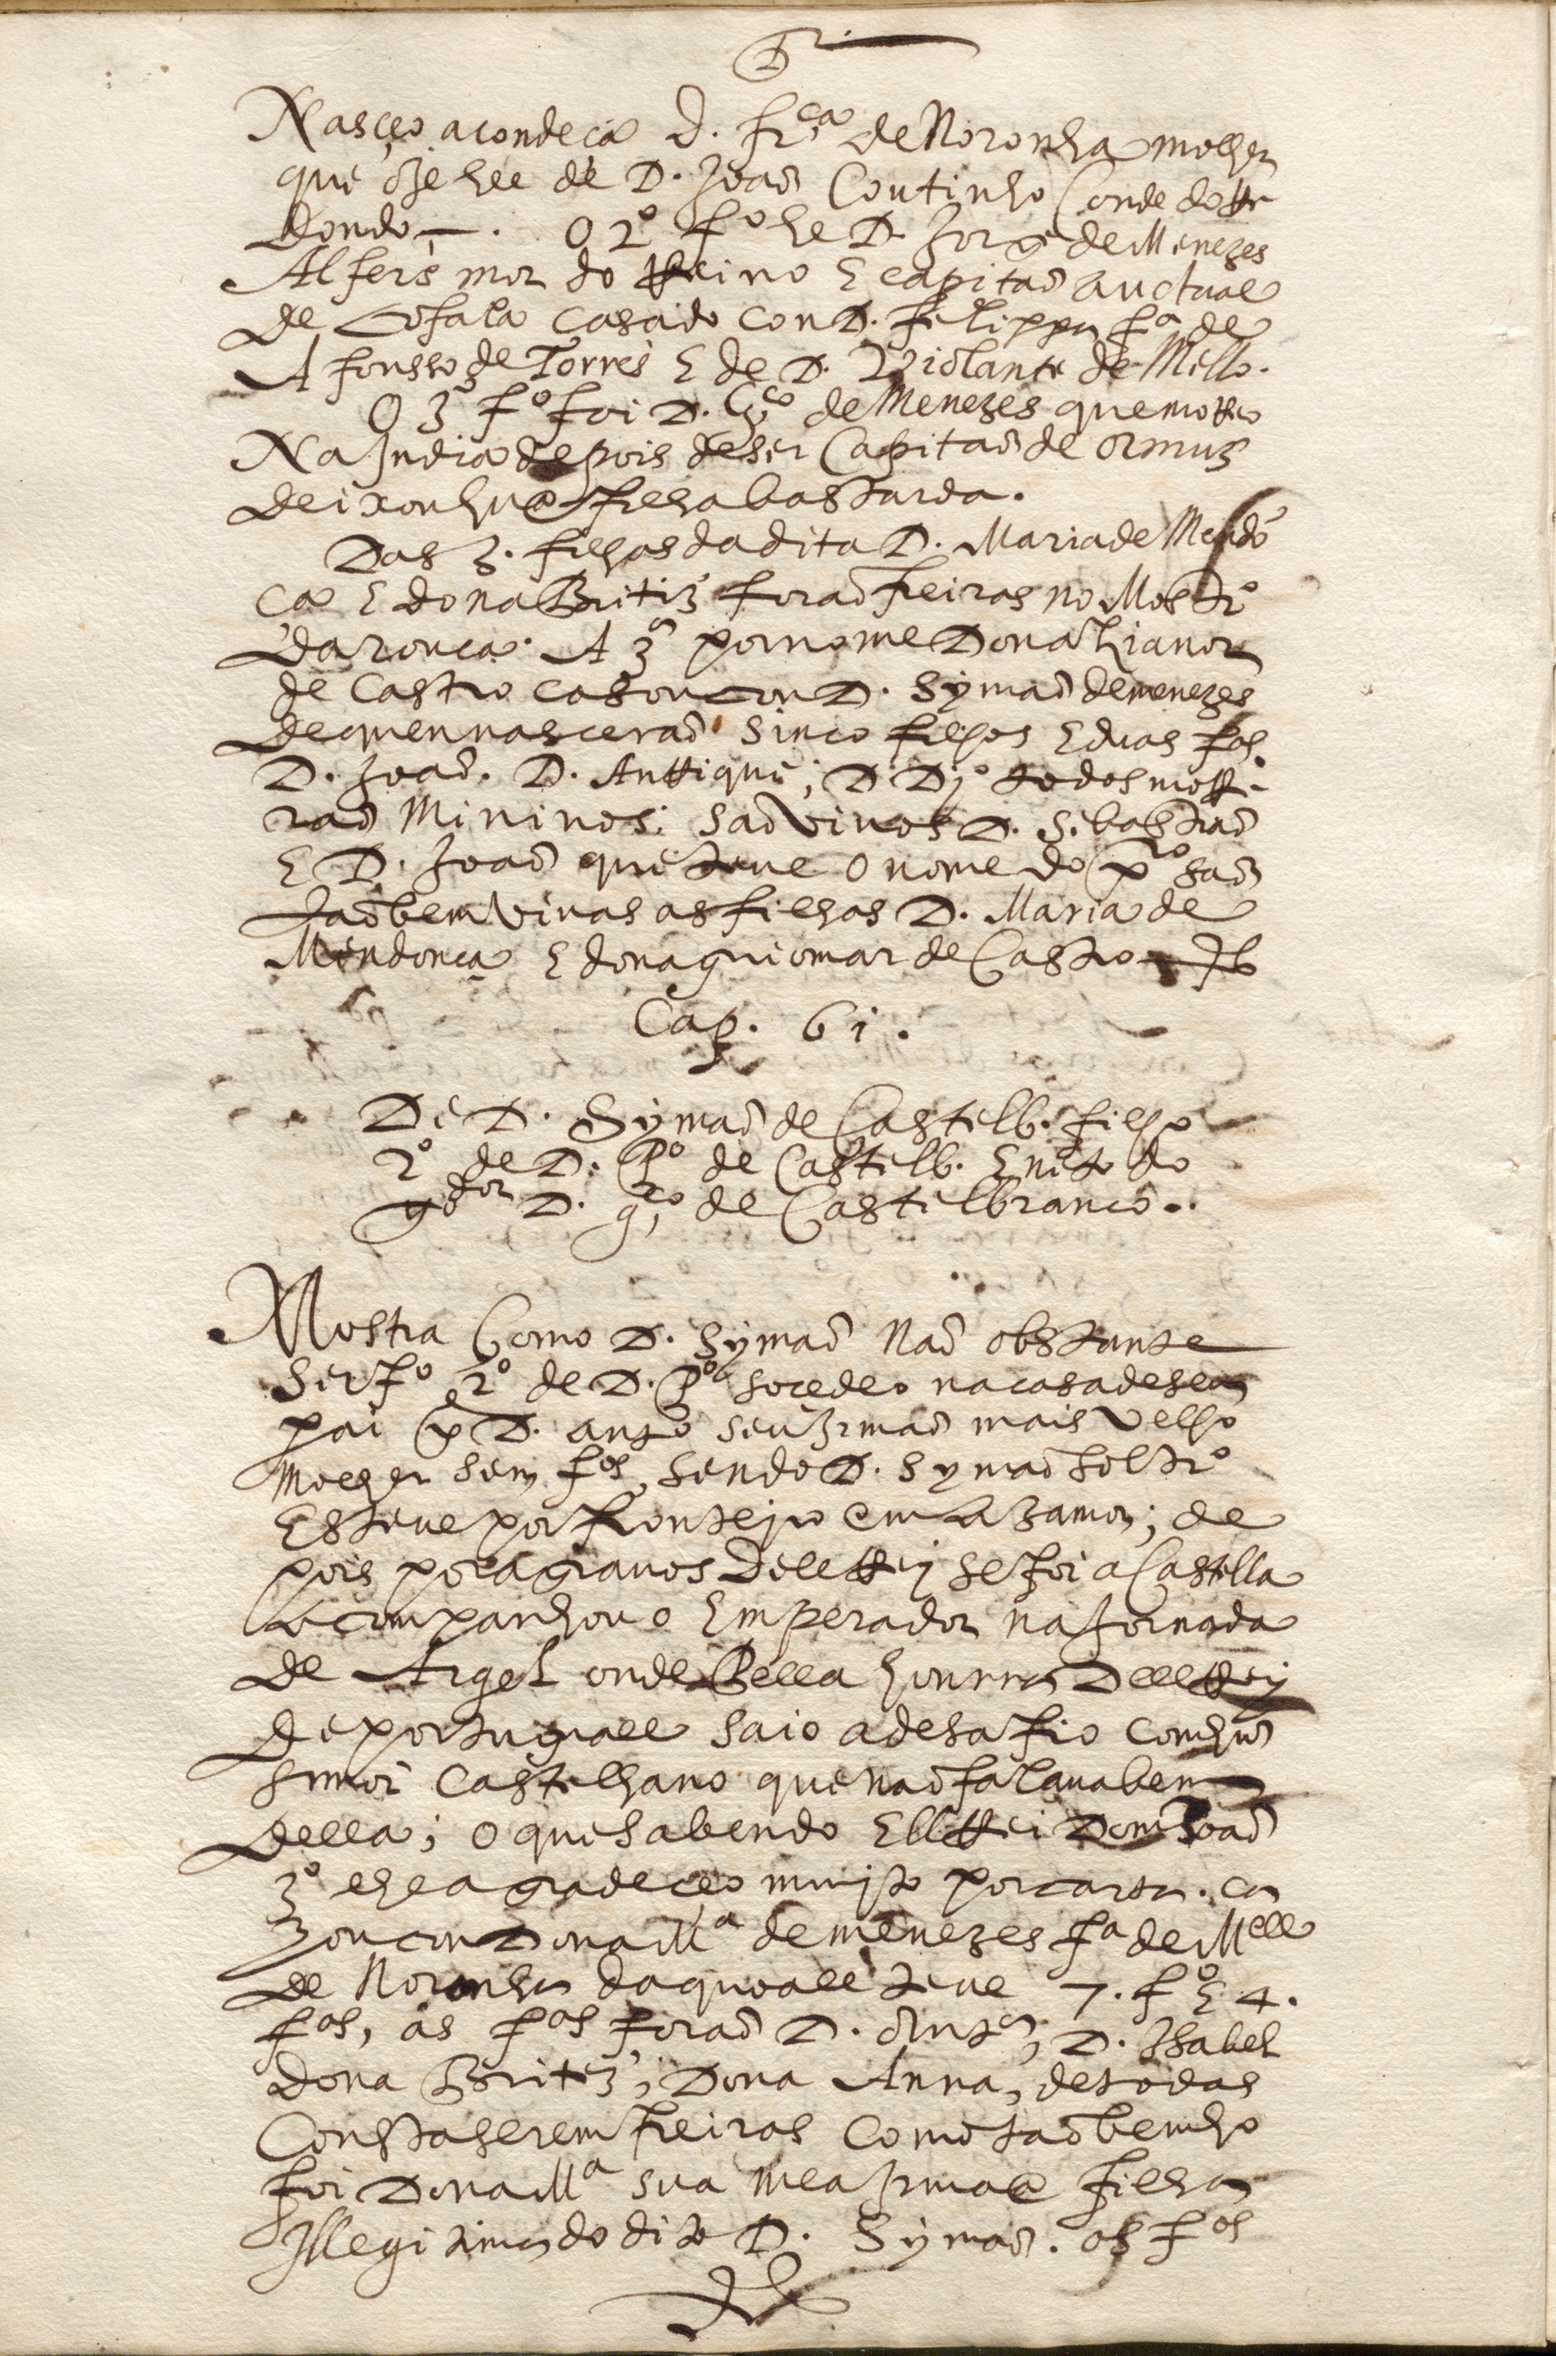 Nasceo a condeça D. fr.ca de Noronha molher
que oje hee de D. Joaõ Coutinho Conde do Re
dondo —. O 2º fº he D. Jorge de Menezes
Alferes mor do Reino E capitaõ auctual
de Cofala casado con D. filippa fª de
Afonsso de Torres E de D. Violante de Mello.
O 3º fº foi D. G.co de Menezes que morreo
Na India depois de ser Capitaõ de Ormuz
deixou hua filha bastarda.
Das 3. filhas da dita D. Maria de Mendo
ça E dona Britiz foraõ freiras no Mostrº
da rouca. A 3ª por nome Dona Lianor
de Castro casou con D. Symaõ de menezes
de quem nasceraõ sinco filhos E duas fas.
D. Joaõ. D. Anrrique; D. Dº todos morre
raõ Mininos; saõ vivos D. Sebastiaõ
E D. Joaõ que teve o nome do pro saõ
taõbem vivas as filhas D. Maria de
Mendonça E dona guiomar de Castro
Cap. 61.
De D. Symaõ de Castelb. filho
2º de D. Pº de Castelb. E neto do
gdor D. g.co de Castelbranco..
Mostra Como D. Symaõ Naõ obstante
Ser fº 2º de D. Pº socedeo na casa de seu
pai p D. antº seu Irmaõ mais velho
Morrer sem fos, sendo D. Symaõ soltrº
Esteve por fronteiro em Azamor; de
pois por agravos del Rei se foi a Castella
acompanhou o Emperador na Jornada
de Argel onde pella honrra del Rey
de portugall saio a desafio com hum
senor Castelhano que naõ falava bem
della; o que sabendo Ell Rei Dom Joaõ
3º lhe agradeceo muito por carta. ca
zou con Dona Mª de menezes fª de Mell
de Noronha da quoall teve 7. fº E 4.
fas, as fas foraõ D. Antª, D. Isabel
dona Britez; Dona Anna, de todas
Consta serem freiras como taõbem ho
foi Dona Mª sua mea Irmaã filha
Illegitima do dito D. Symaõ. os fos